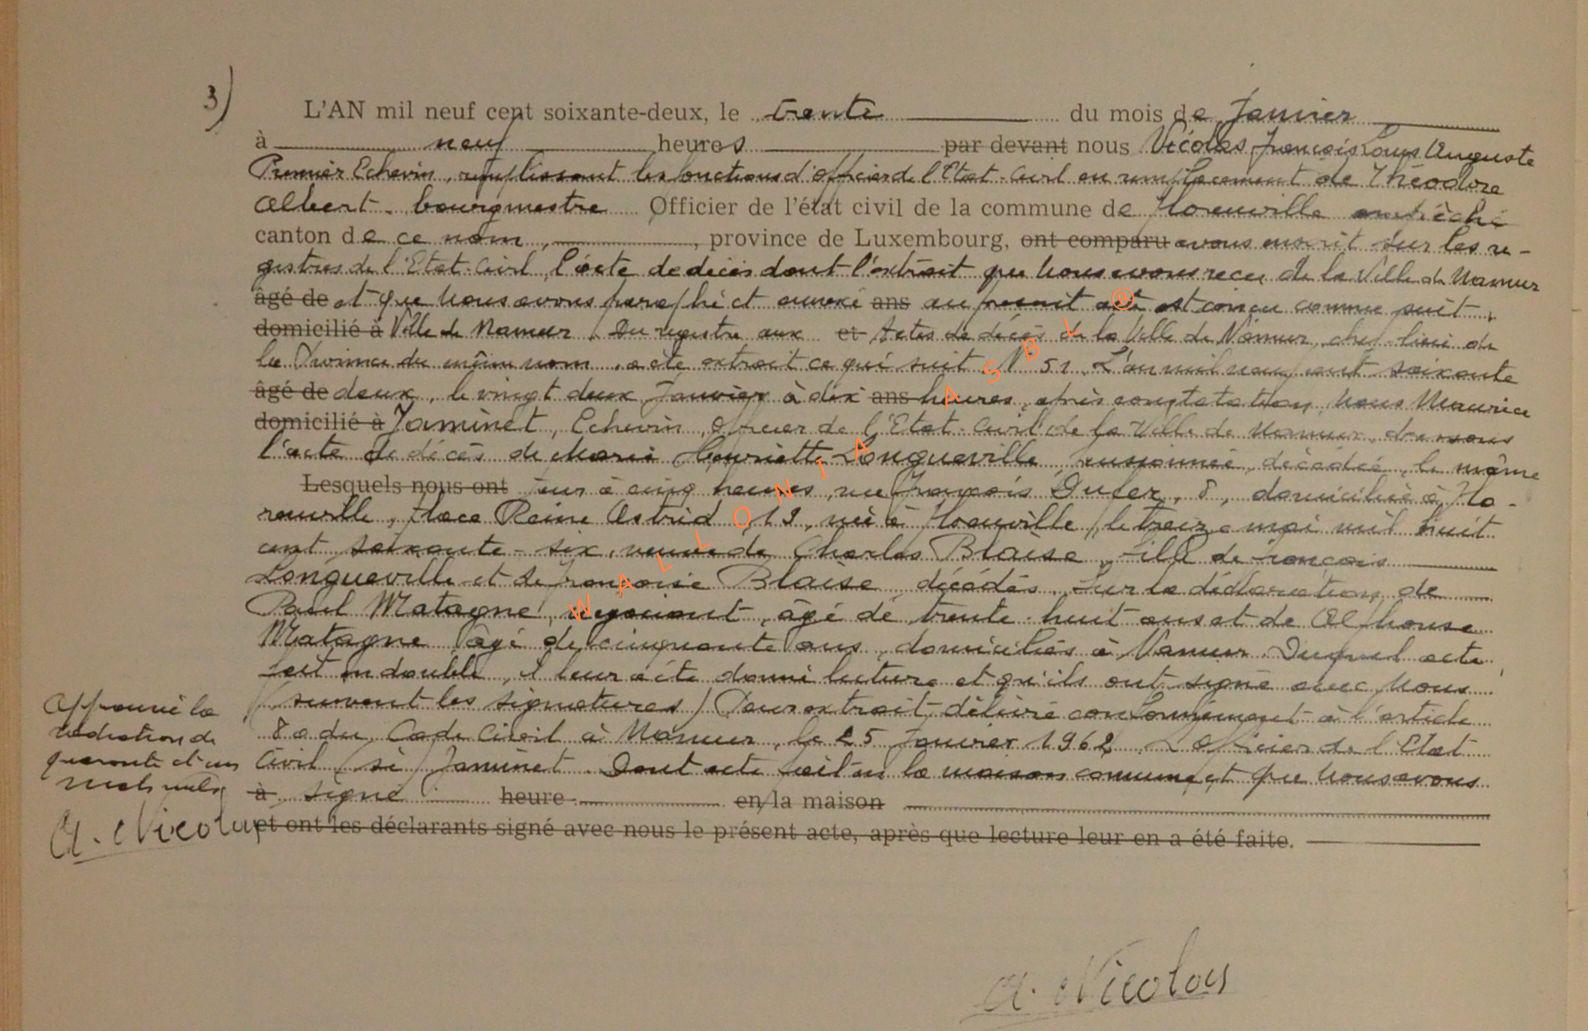 3)
L'AN mil neuf cent soixante-deux, le trente du mois de Janvier
à neuf heures par devant nous Nicolas François Louis Auguste
Premier Echevin, remplissant les fonctions d'officier de l'Etat-Civil en remplacement de Théodore
Albert bourgmestre Officier de l'état civil de la commune de Florenville empêché
canton de ce nom, province de Luxembourg, ont comparu avons inscrit sur les re-
gistres de l'Etat-Civil, l'acte de décès dont l'extrait que nous avons reçu de la Ville de Namur
âgé de et que nous avons paraphé et annexé ans au présent acte est conçu comme suit,
domicilié à Ville de Namur. Du registre aux et Actes de décès de la Ville de Namur, chef-lieu de
la Province du même nom, acte extrait ce qui suit N° 51 L'an mil neuf cent soixante
âgé de deux, le vingt deux Janvier à dix ans heures, après constatation, Nous Maurice
domicilié à Jaminet, Echevin, Officier de l'Etat-Civil de la Ville de Namur, dressons
l'acte de décès de Marie Henriette Longueville, décédée le même
Lesquels nous ont jour à cinq heures, rue François Dufer, 8, domiciliée à Flo-
renville, place Reine Astrid 019, née à Florenville, le treize mai mil huit
cent soixante-six, veuve de Charles Blaise, fille de François
Longueville et de Françoise Blaise, décédés. Sur la déclaration de
Paul Matagne, négociant, âgé de trente-huit ans et de Alphonse
Matagne âgé de cinquante ans, domiciliés à Namur Duquel acte
fait en double, il leur a été donné lecture et qu'ils ont signé avec Nous
(suivent les signatures) Pour extrait délivré conformément à l'article
80 du Code Civil à Namur, le 25 Janvier 1962 L'officier de l'Etat
Civil (sé) Jaminet. Dont acte fait en la maison commune, et que nous avons
à signé heure en la maison
et ont les déclarants signé avec nous le présent acte, après que lecture leur en a été faite.
Approuvé la
radiation de
quarante et un
mots nuls
A. Nicolas
A. Nicolas
WALLONIA ASBL @